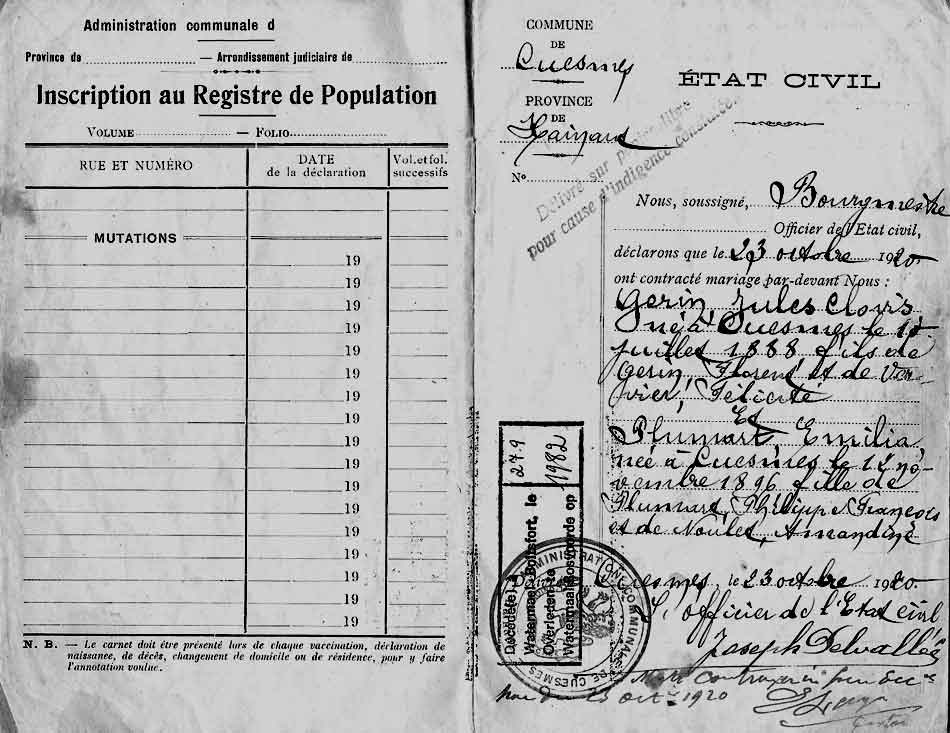 Administration communale d
Province de — Arrondissement judiciaire de
Inscription au Registre de Population
VOLUME — FOLIO
RUE ET NUMÉRO
DATE
de la déclaration
Vol. et fol.
successifs
MUTATIONS
19
19
19
19
19
19
19
19
19
19
19
19
19
19
19
19
19
N. B. — Le carnet doit être présenté lors de chaque vaccination, déclaration de
naissance, de décès, changement de domicile ou de résidence, pour y faire
l'annotation voulue.
COMMUNE
DE
Cuesmes
PROVINCE
DE
Hainaut
N°
Délivré sur papier libre
pour cause d'indigence constatée.
ÉTAT CIVIL
Nous, soussigné, Bourgmestre
Officier de l'Etat civil,
déclarons que le 23 octobre 1920
ont contracté mariage par-devant Nous :
Gerin Jules Clovis
né à Cuesmes le
juillet 1888 fils de
Gerin, Florent et de
Félicité
Et
Plumart, Emilia
née à Cuesmes le no-
vembre 1896 fille de
Plumart, Philippe François
et de Noulet, Amandine
Cuesmes, le 23 octobre 1920
L'officier de l'Etat civil
Joseph Delvallée
23 oct 1920
Décédé(e) à
Watermael-Boitsfort, le 27 9
Overleden te
Watermaal-Bosvoorde op 1982
ADMINISTRATION COMMUNALE DE CUESMES